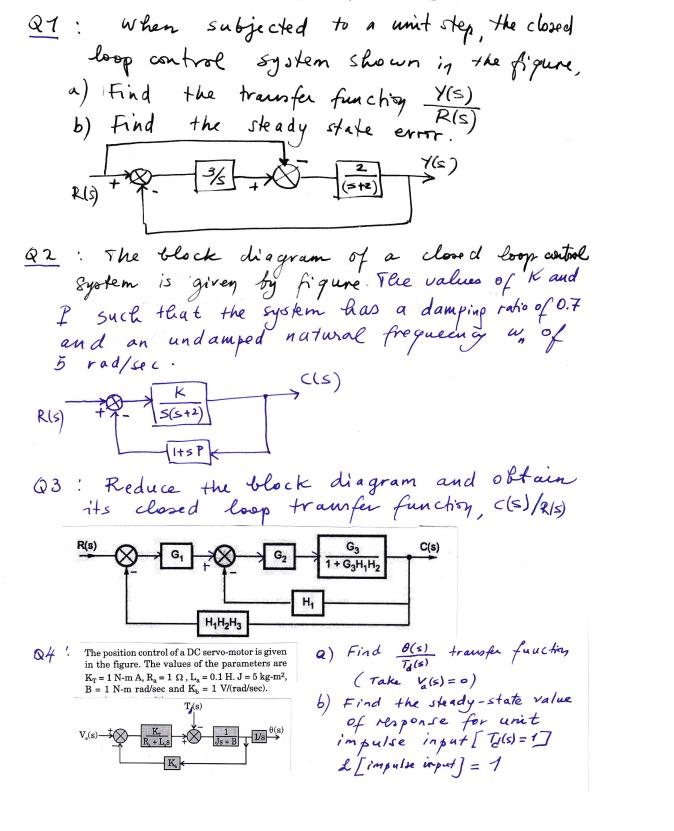 Q1 : When subjected to a unit step, the closed
loop control system shown in the figure,
a) Find the transfer function Y(s)/R(s)
b) Find the steady state error.
R(s) + - 3/s + - 2/(s+2) Y(s)
Q2 : The block diagram of a closed loop control
System is given by figure. The values of K and
P such that the system has a damping ratio of 0.7
and an undamped natural frequency ωn of
5 rad/sec.
R(s) + - K/S(S+2) C(s)
1+sP
Q3 : Reduce the block diagram and obtain
its closed loop transfer function, C(s)/R(s)
R(s) - G₁ + - G₂ G₃/1 + G₃H₁H₂ C(s)
H₁
H₁H₂H₃
Q4 : The position control of a DC servo-motor is given
in the figure. The values of the parameters are
K_T = 1 N-m A, R_a = 1 Ω, L_a = 0.1 H. J = 5 kg-m²,
B = 1 N-m rad/sec and K_b = 1 V/(rad/sec).
T_d(s)
V_a(s) + - K_T/R_a + L_as + - 1/Js + B 1/s θ(s)
K_b
a) Find θ(s)/T_d(s) transfer function
(Take V_a(s) = 0)
b) Find the steady-state value
of response for unit
impulse input [T_d(s) = 1]
L[impulse input] = 1